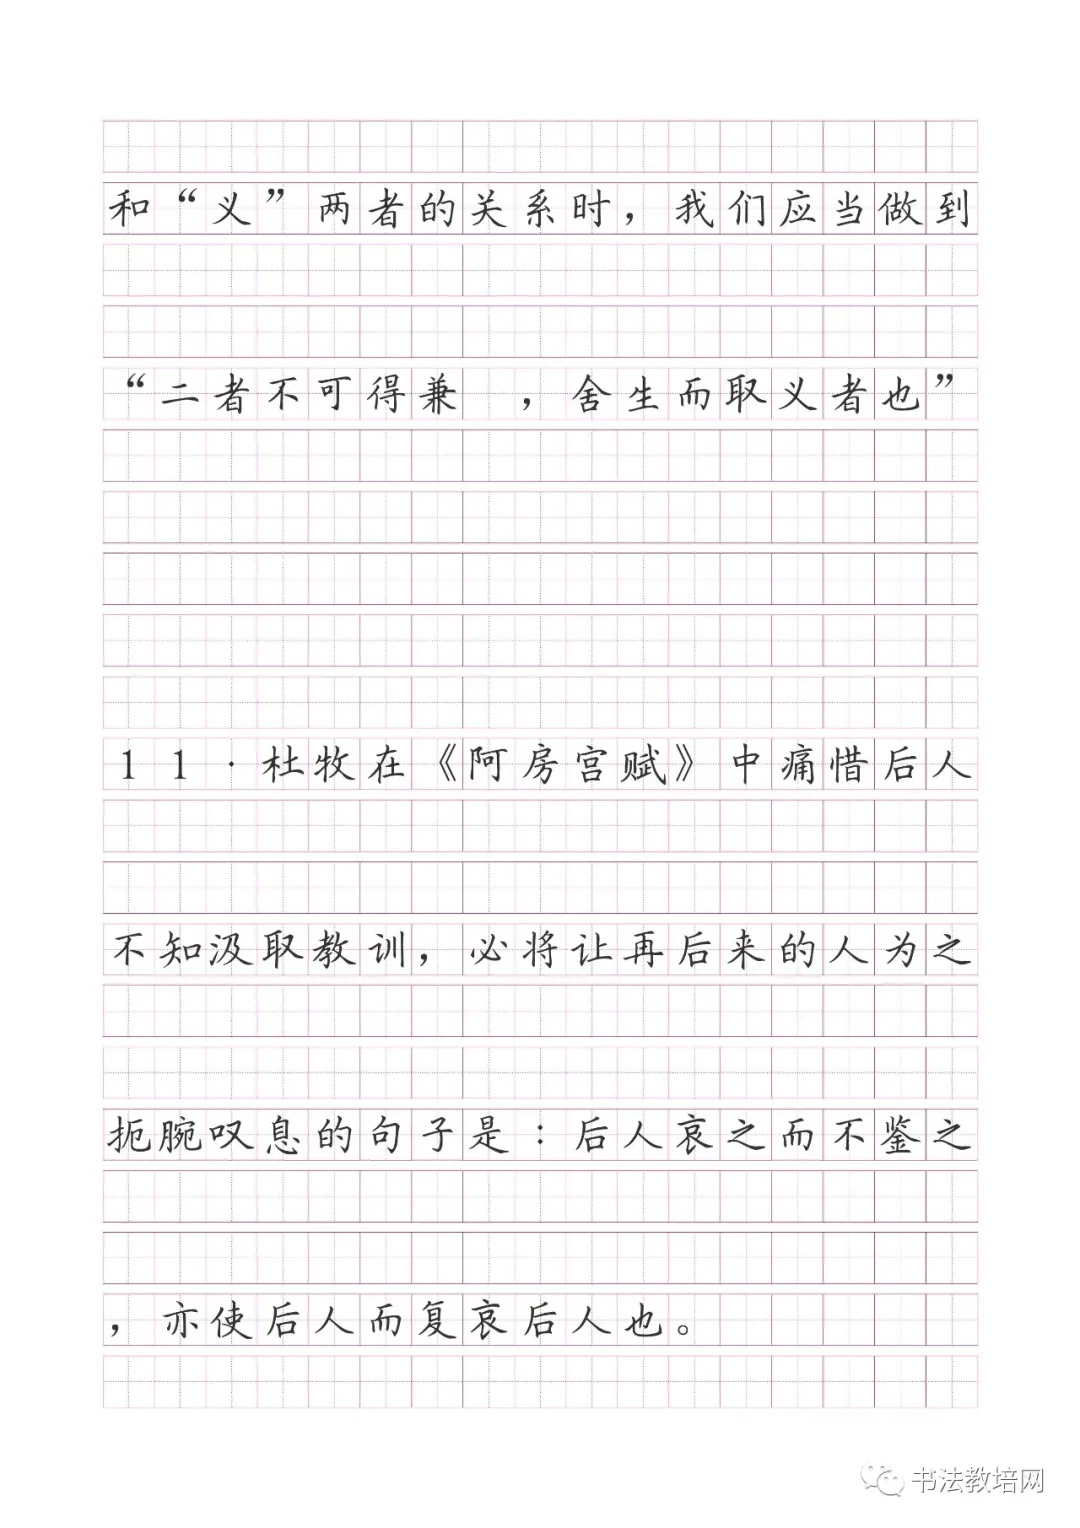 和“义”两者的关系时，我们应当做到
“二者不可得兼 ，舍生而取义者也”
11·杜牧在《阿房宫赋》中痛惜后人
不知汲取教训，必将让再后来的人为之
扼腕叹息的句子是：后人哀之而不鉴之
，亦使后人而复哀后人也。
书法教培网